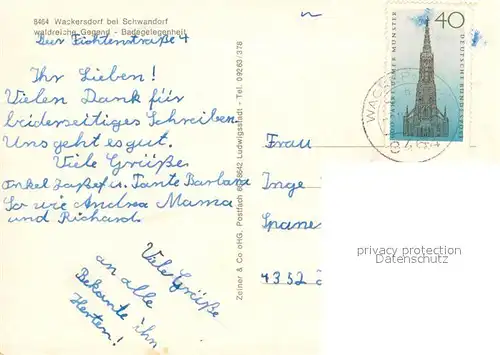 8464 Wackersdorf bei Schwandorf
waldreiche Gegend - Badegelegenheit
Fichtenstraße 4
Ihr Lieben!
Vielen Dank für
beiderseitiges Schreiben.
Uns geht es gut.
Viele Grüße
Onkel u. Tante Barbara
So wie Andrea Mama
und Richard
Viele Grüße
an alle
Bekante ihn
Herten!
Zeiner & Co oHG, Postfach 8642 Ludwigsstadt - Tel. 09263/378
Frau
Inge
Spane
4352
40
600 JAHRE ULMER MÜNSTER
DEUTSCHE BUNDESPOST
WACKERS
privacy protection
Datenschutz